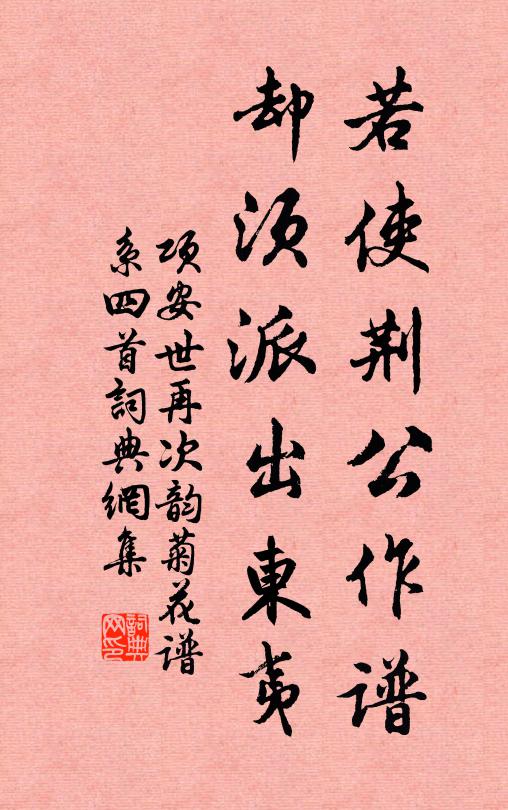 若使荆公作谱
却须派出東夷
项安世再次韵菊花谱
系四首詞典網集
詞典网印